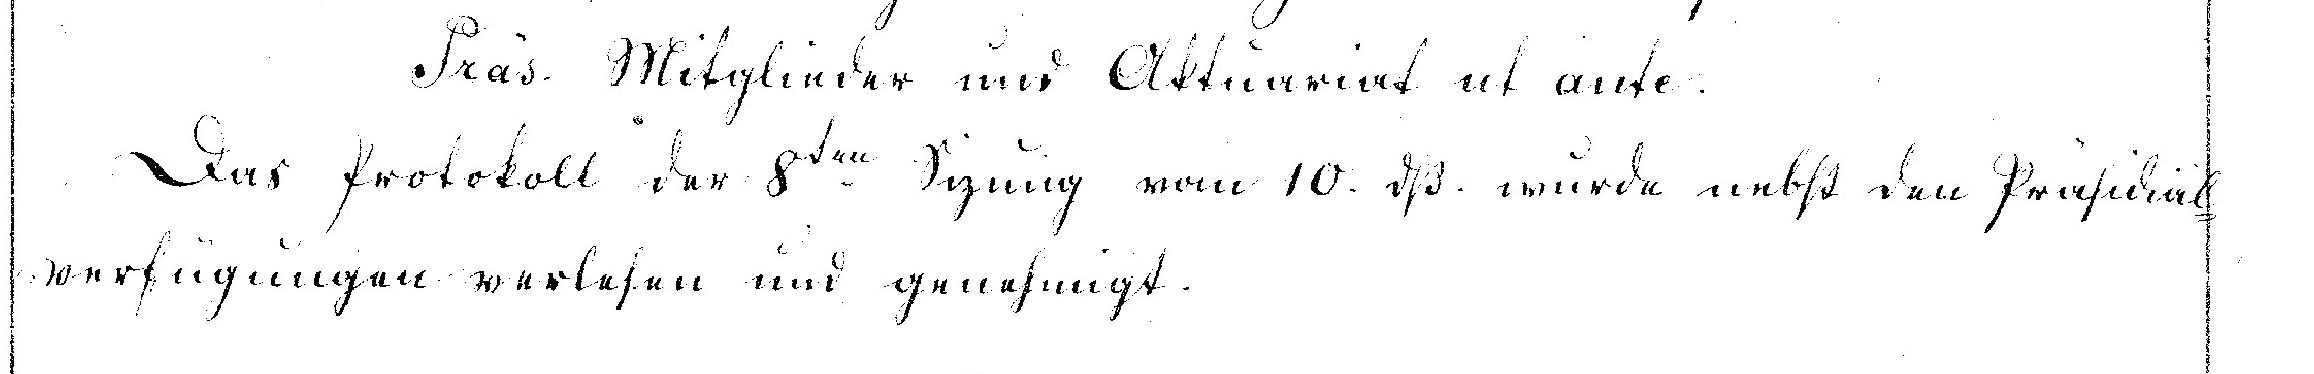 Präs. Mitglieder und Aktuariat ut ante.
Das Protokoll der 8ten Sizung vom 10. dß. wurde nebst den Präsidial=
verfügungen verlesen und genehmigt.